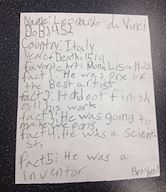 Name: Leonardo da Vinci
DoB 1452
Country: Italy
Year of Death: 1519
favorite Art: Mona Lisa
fact 1: He was one of
the Best artist
fact 2: I did not finish
all work
fact 3: He was going to
fact 4: He was a scient
ist
fact 5: He was a
inventor